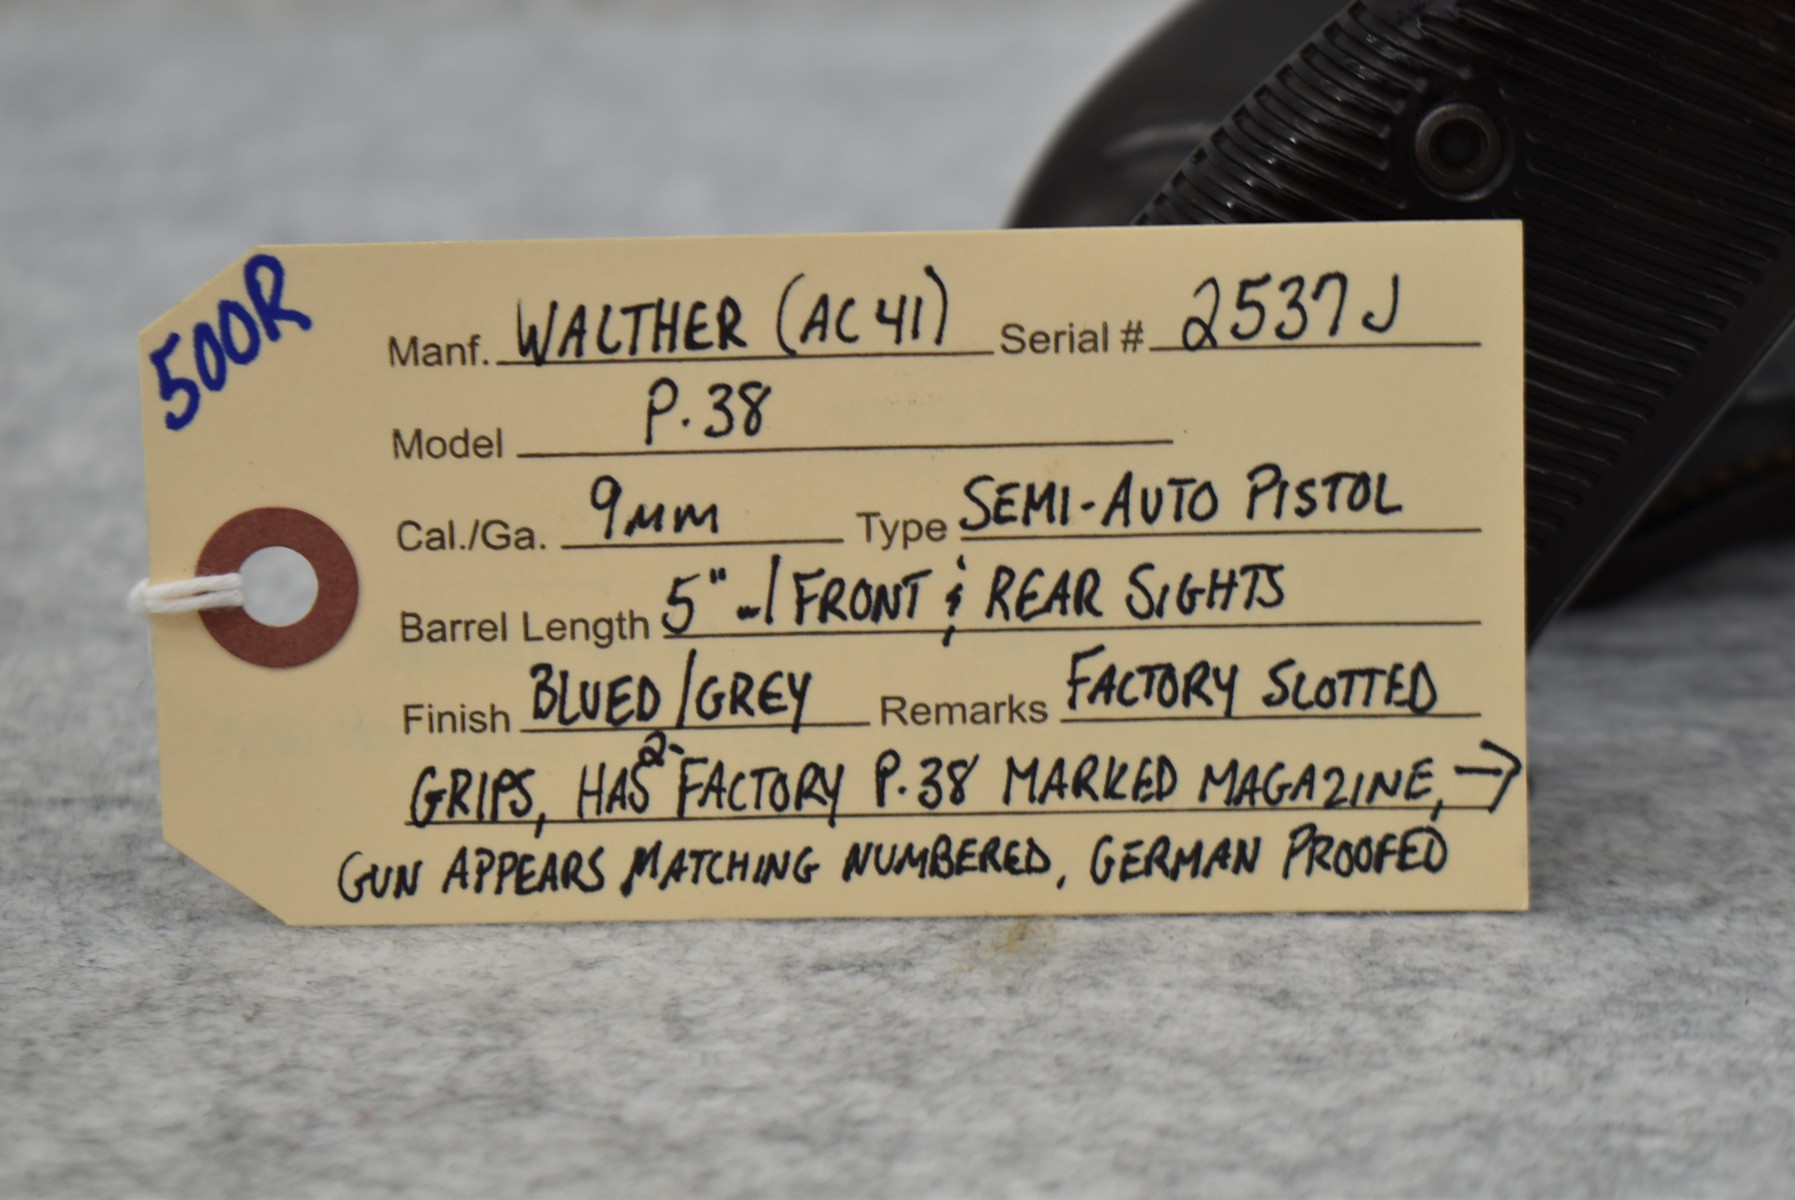 500R
Manf. WALTHER (AC 41) Serial # 2537J
Model P.38
Cal./Ga. 9mm Type SEMI-AUTO PISTOL
Barrel Length 5" w/ FRONT & REAR SIGHTS
Finish BLUED/GREY Remarks FACTORY SLOTTED
GRIPS, HAS 2- FACTORY P.38 MARKED MAGAZINE, →
GUN APPEARS MATCHING NUMBERED, GERMAN PROOFED